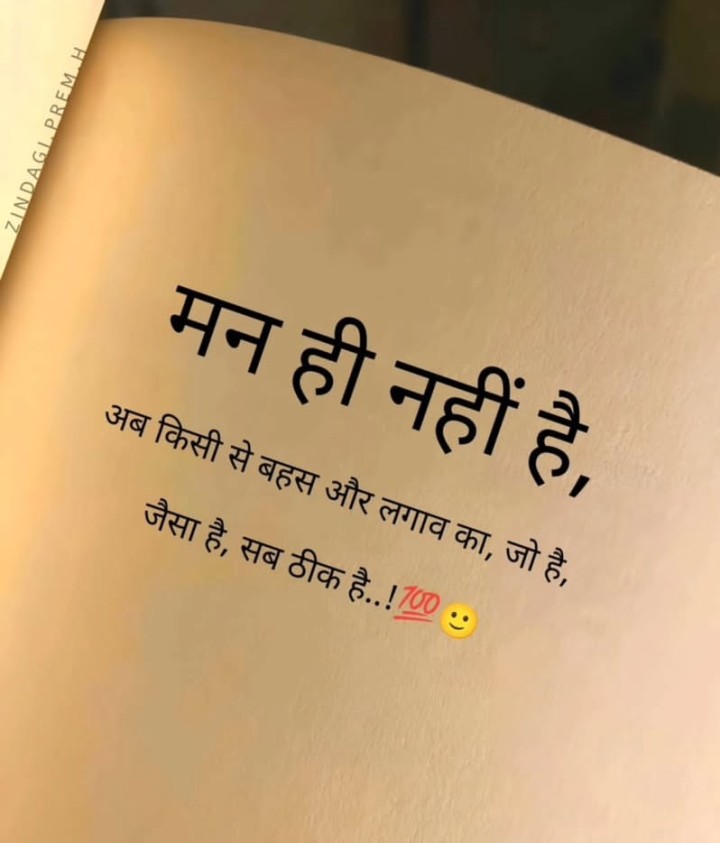 ZINDAGI.PREM.H
मन ही नहीं है,
अब किसी से बहस और लगाव का, जो है,
जैसा है, सब ठीक है..!💯🙂